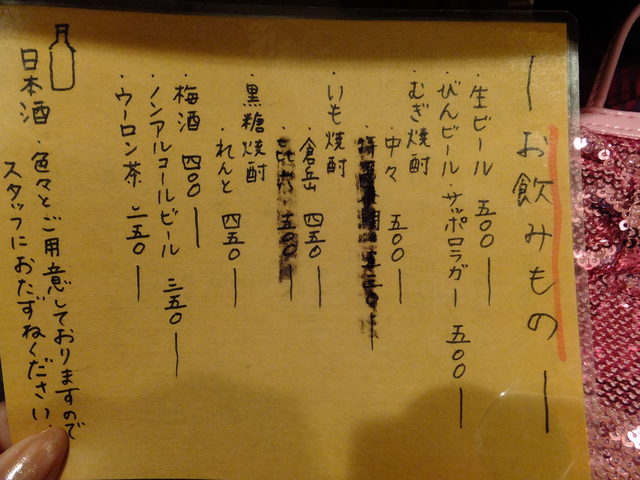 お飲みもの
・生ビール 五〇〇
・びんビール・サッポロラガー 五〇〇
・むぎ焼酎
・中々 五〇〇
・いも焼酎
・倉岳 四五〇
・黒糖焼酎
・れんと 四五〇
・梅酒 四〇〇
・ノンアルコールビール 三五〇
・ウーロン茶 二五〇
日本酒・色々とご用意しておりますので
スタッフにおたずねください